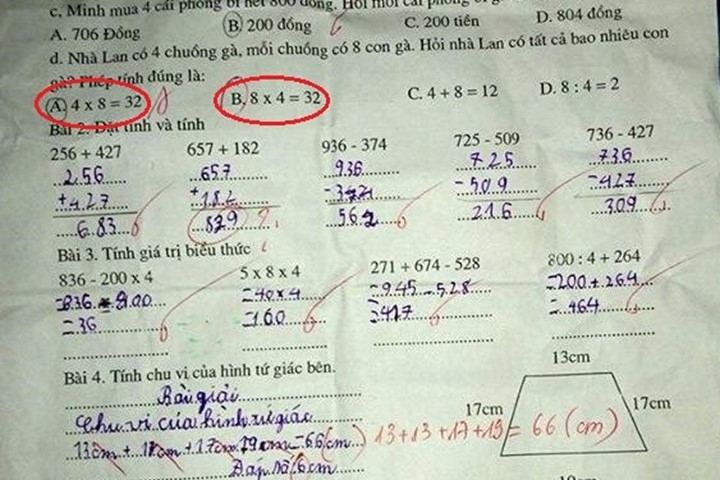 c, Minh mua 4 cái phong bì hết 800 đồng. Hỏi mỗi cái phong bì
A. 706 Đồng B. 200 đồng C. 200 tiền D. 804 đồng
d. Nhà Lan có 4 chuồng gà, mỗi chuồng có 8 con gà. Hỏi nhà Lan có tất cả bao nhiêu con
gà? Phép tính đúng là:
A. 4 x 8 = 32 B. 8 x 4 = 32 C. 4 + 8 = 12 D. 8 : 4 = 2
Bài 2. Đặt tính và tính
256 + 427 657 + 182 936 - 374 725 - 509 736 - 427
256 657 936 725 736
+427 +182 -374 -509 -427
683 829 562 216 309
Bài 3. Tính giá trị biểu thức
836 - 200 x 4 5 x 8 x 4 271 + 674 - 528 800 : 4 + 264
=836 - 800 =40 x 4 =945 - 528 =200 + 264
=36 =160 =417 =464
Bài 4. Tính chu vi của hình tứ giác bên.
13cm
Bài giải
Chu vi của hình tứ giác
17cm 17cm
13cm + 17cm + 17cm 19cm = 66 (cm) 13+13+17+19 = 66 (cm)
Đáp số 6cm
19cm